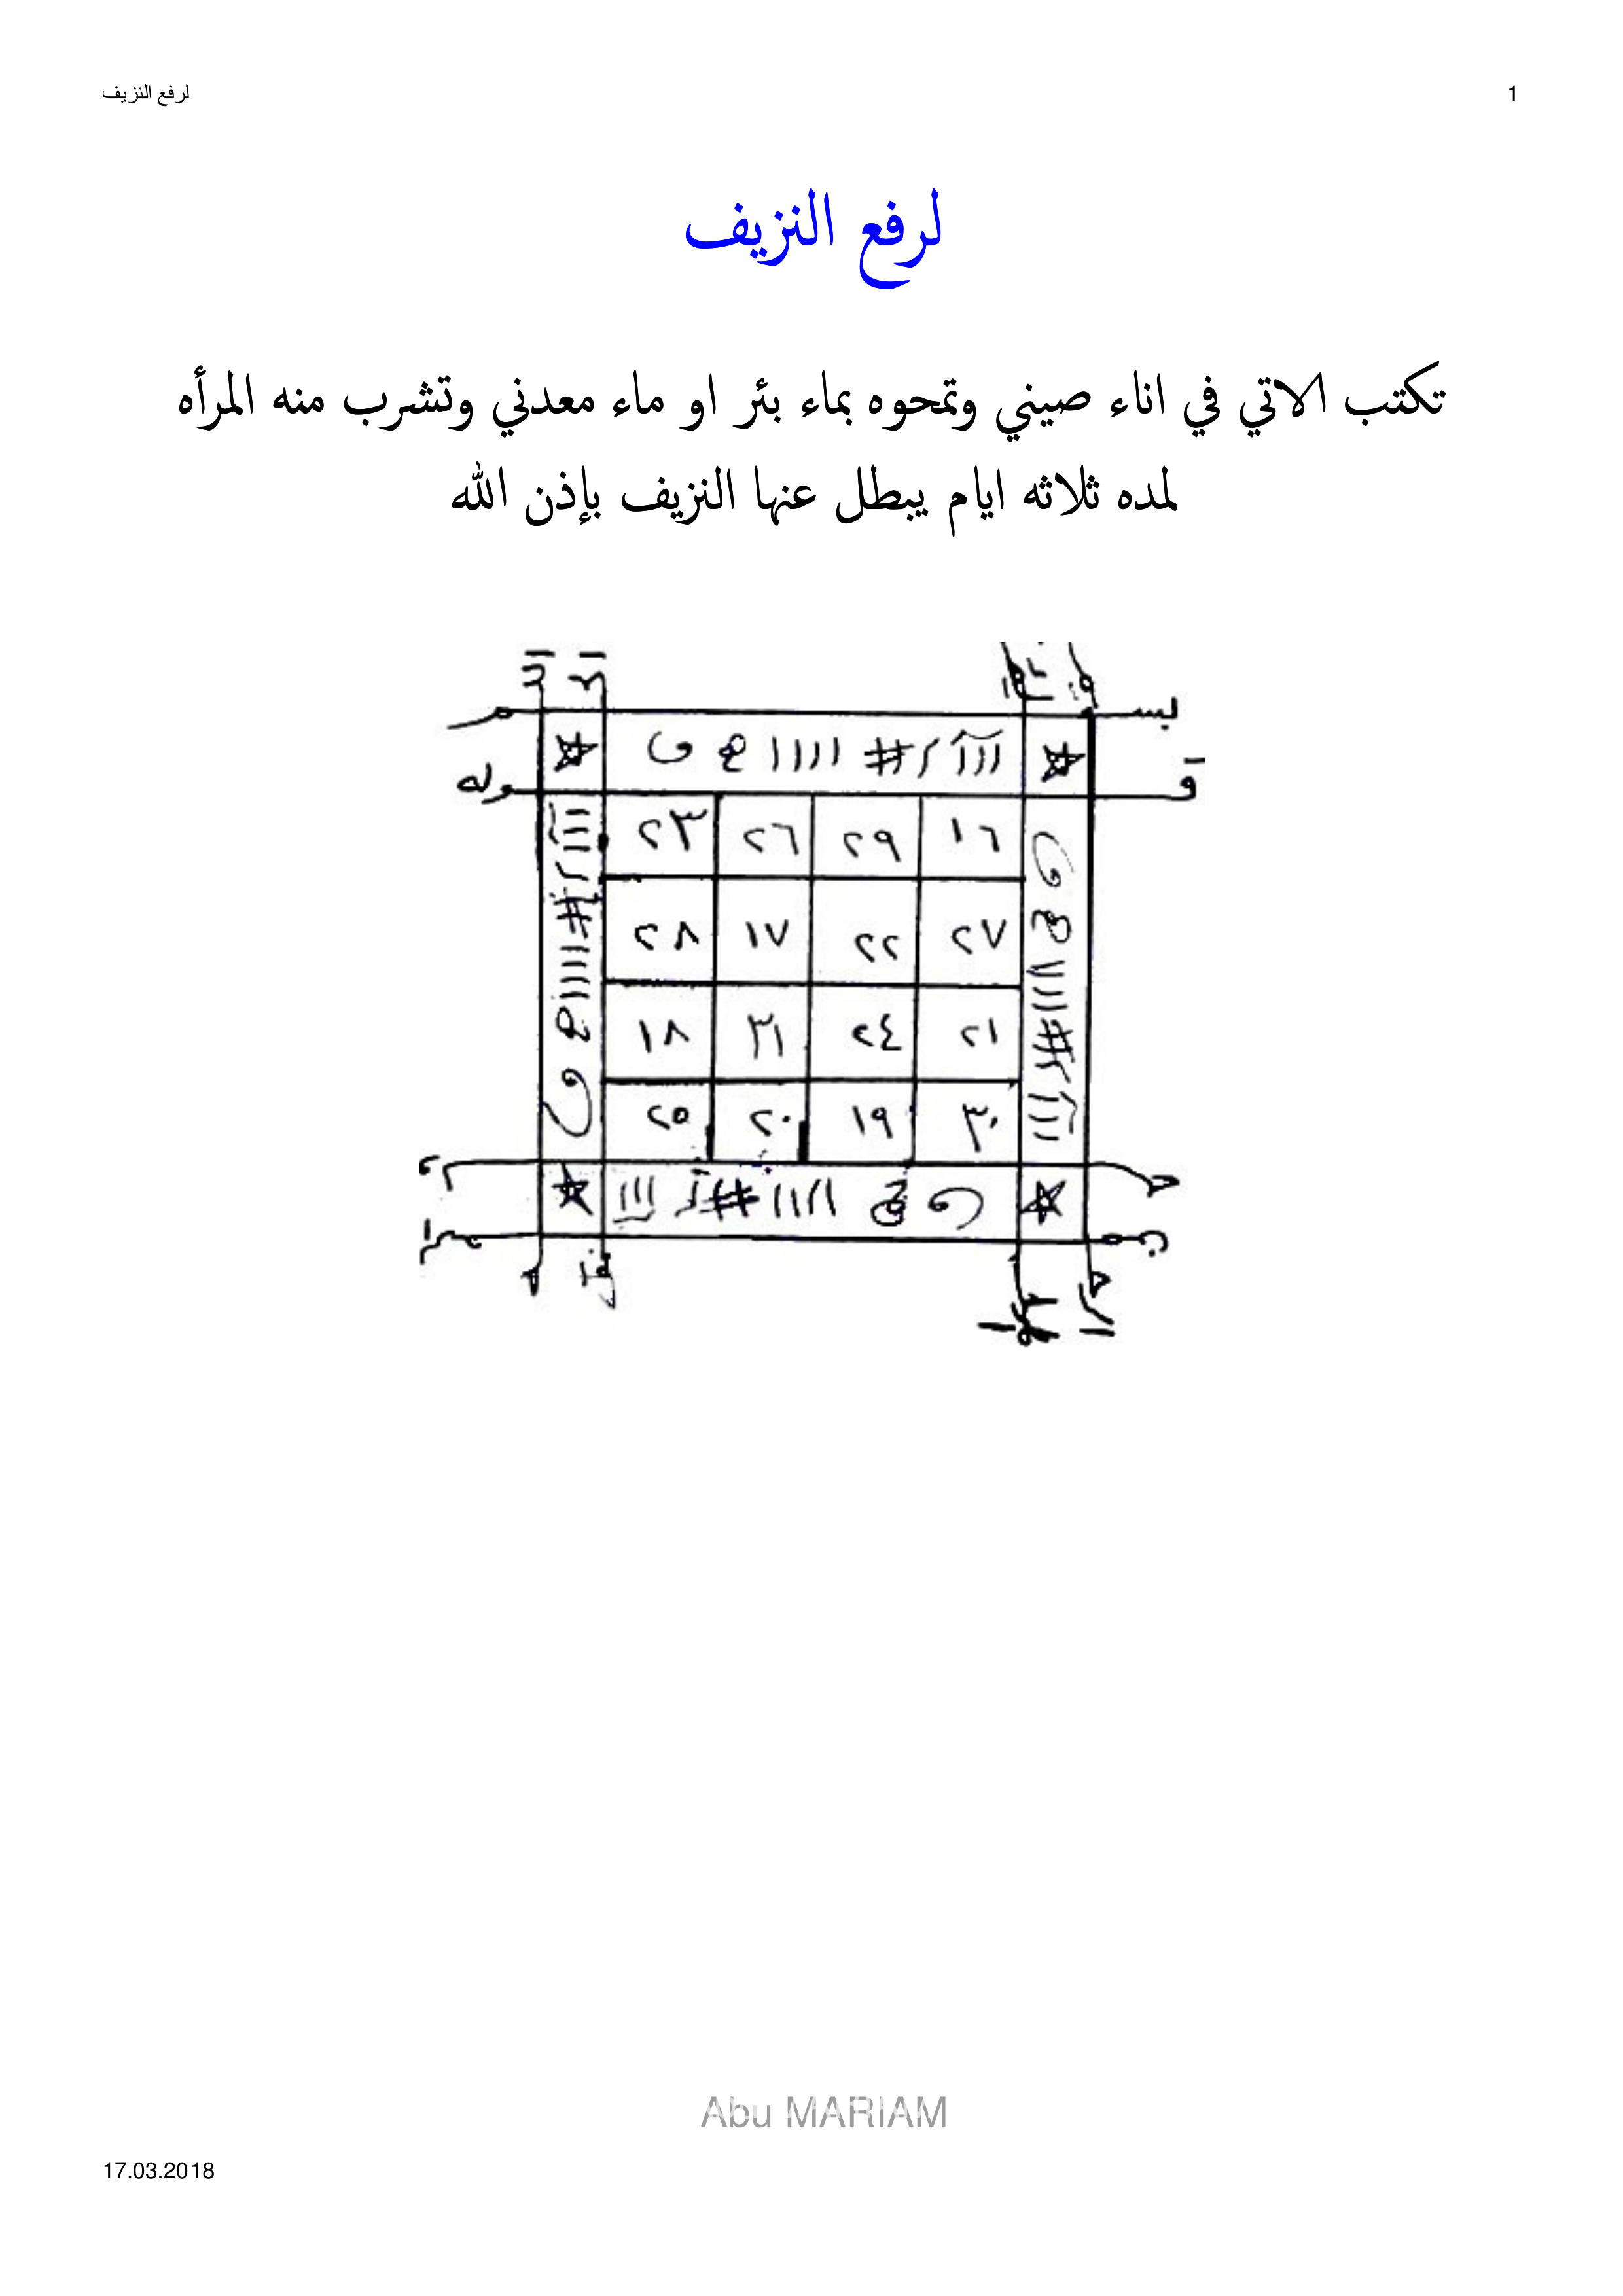 لرفع النزيف
1
لرفع النزيف
تكتب الاتي في اناء صيني وتمحوه بماء بئر او ماء معدني وتشرب منه المرأه
لمده ثلاثه ايام يبطل عنها النزيف بإذن الله
١٦ ٢٩ ٢٦ ٢٣
٢٧ ٢٢ ١٧ ٢٨
٢١ ٢٤ ٣١ ١٨
٣٠ ١٩ ٢٠ ٢٥
Abu MARIAM
17.03.2018